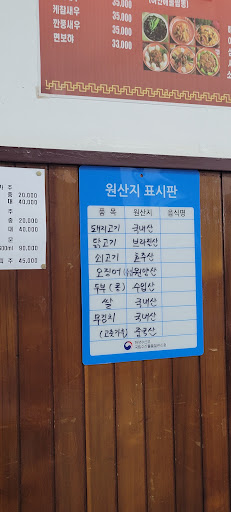 35,000
케찹새우 35,000
깐풍새우 35,000
면보하 33,000
주
중 20,000
대 40,000
주
중 20,000
대 40,000
500ml 90,000
주 45,000
원산지 표시판
품 목 원산지 음식명
돼지고기 국내산
닭고기 브라질산
쇠고기 호주산
오징어 원양산
두부(콩) 수입산
쌀 국내산
무김치 국내산
(고춧가루) 중국산